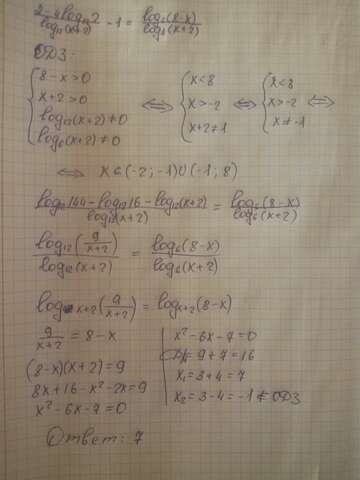 (2-4log₁₂2)/(log₁₂(x+2)) - 1 = (log₆(8-x))/(log₆(x+2))
ОДЗ:
{ 8-x>0; x+2>0; log₁₂(x+2)≠0; log₆(x+2)≠0 ⟺ { x<8; x>-2; x+2≠1 ⟺ { x<8; x>-2; x≠-1 ⟺
⟺ x∈(-2;-1)∪(-1;8)
(log₁₂144-log₁₂16-log₁₂(x+2))/(log₁₂(x+2)) = (log₆(8-x))/(log₆(x+2))
(log₁₂(9/(x+2)))/(log₁₂(x+2)) = (log₆(8-x))/(log₆(x+2))
log x+2 (9/(x+2)) = log x+2 (8-x)
9/(x+2) = 8-x
(8-x)(x+2)=9
8x+16-x²-2x=9
x²-6x-7=0
x²-6x-7=0
= 9+7=16
x₁=3+4=7
x₂=3-4=-1 ∉ ОДЗ
Ответ: 7